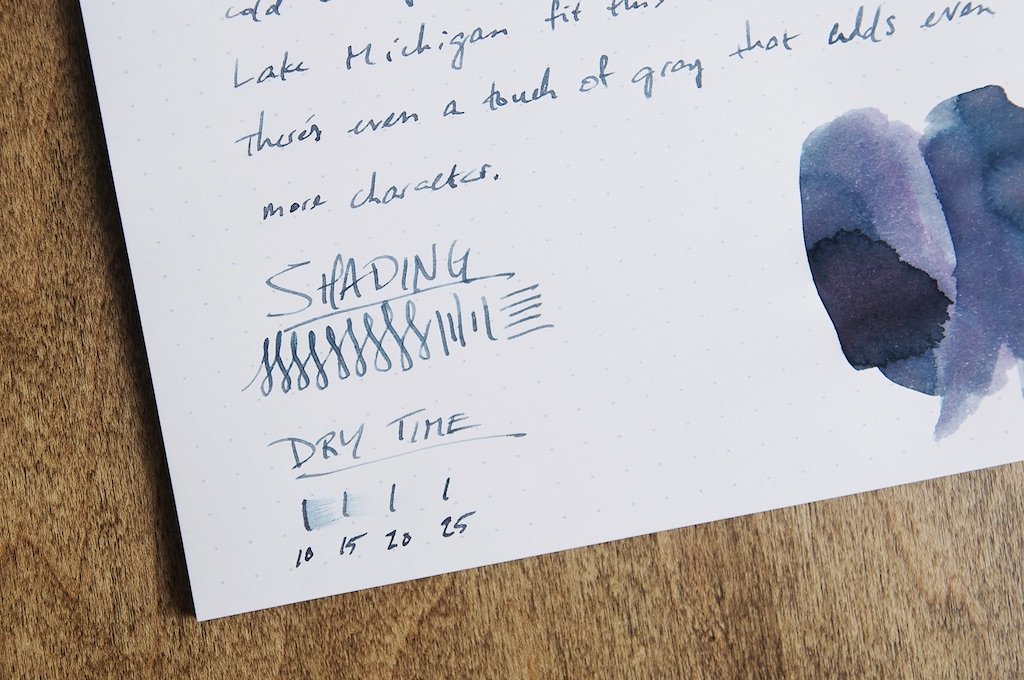 cold
Lake Michigan fit this
there's even a touch of gray that adds even
more character.
SHADING
DRY TIME
10 15 20 25